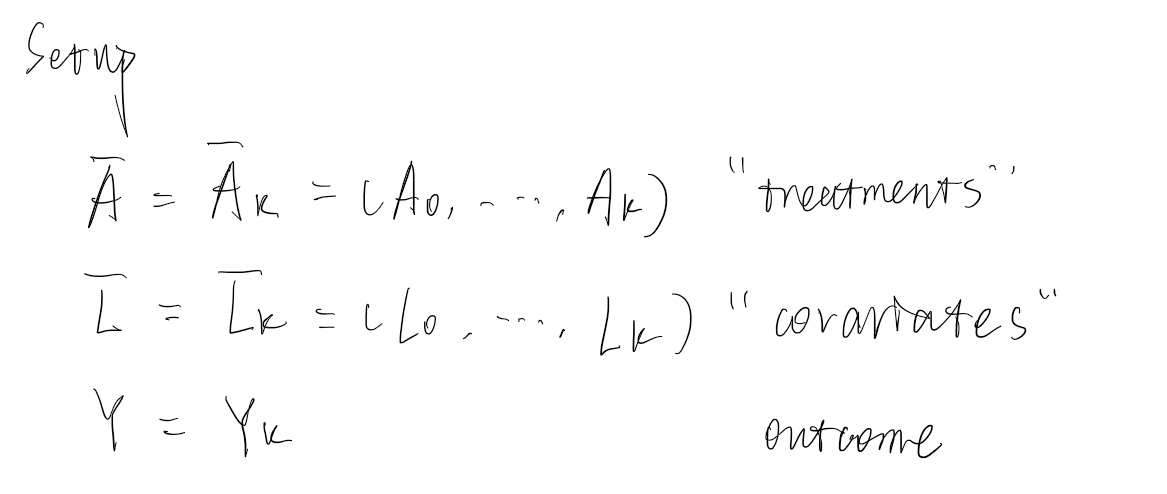 Setup
A̅ = A̅ₖ = (A₀, ..., Aₖ) "treatments"
L̅ = L̅ₖ = (L₀, ..., Lₖ) "covariates"
Y = Yₖ outcome